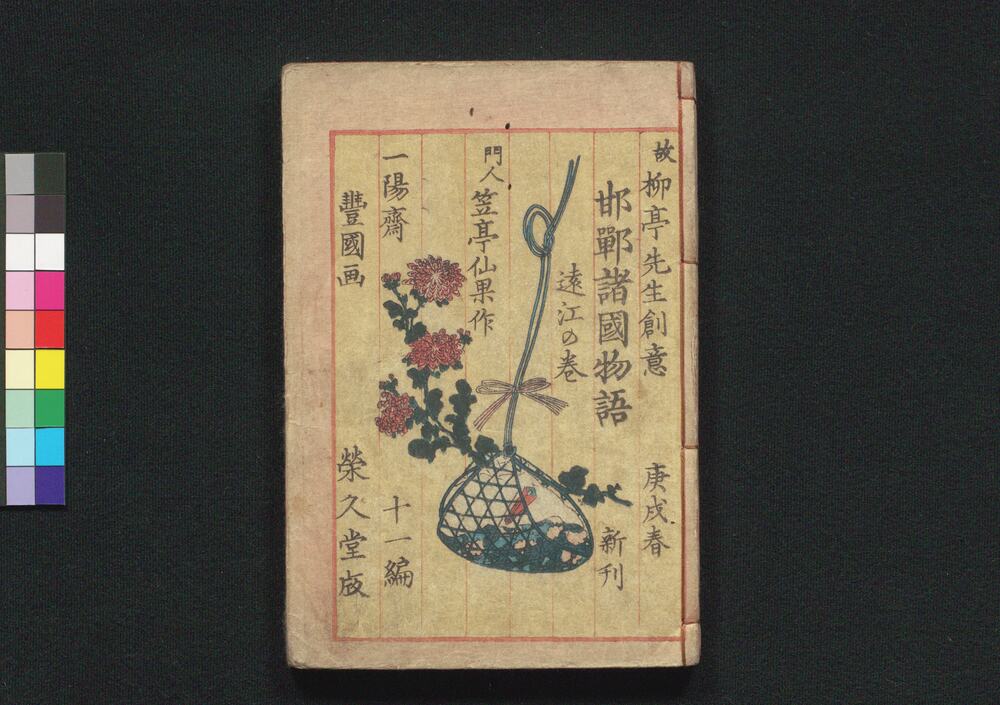 故柳亭先生創意
庚戌春
邯鄲諸國物語
新刊
遠江の巻
門人笠亭仙果作
一陽齋
十一編
豐國画
榮久堂版